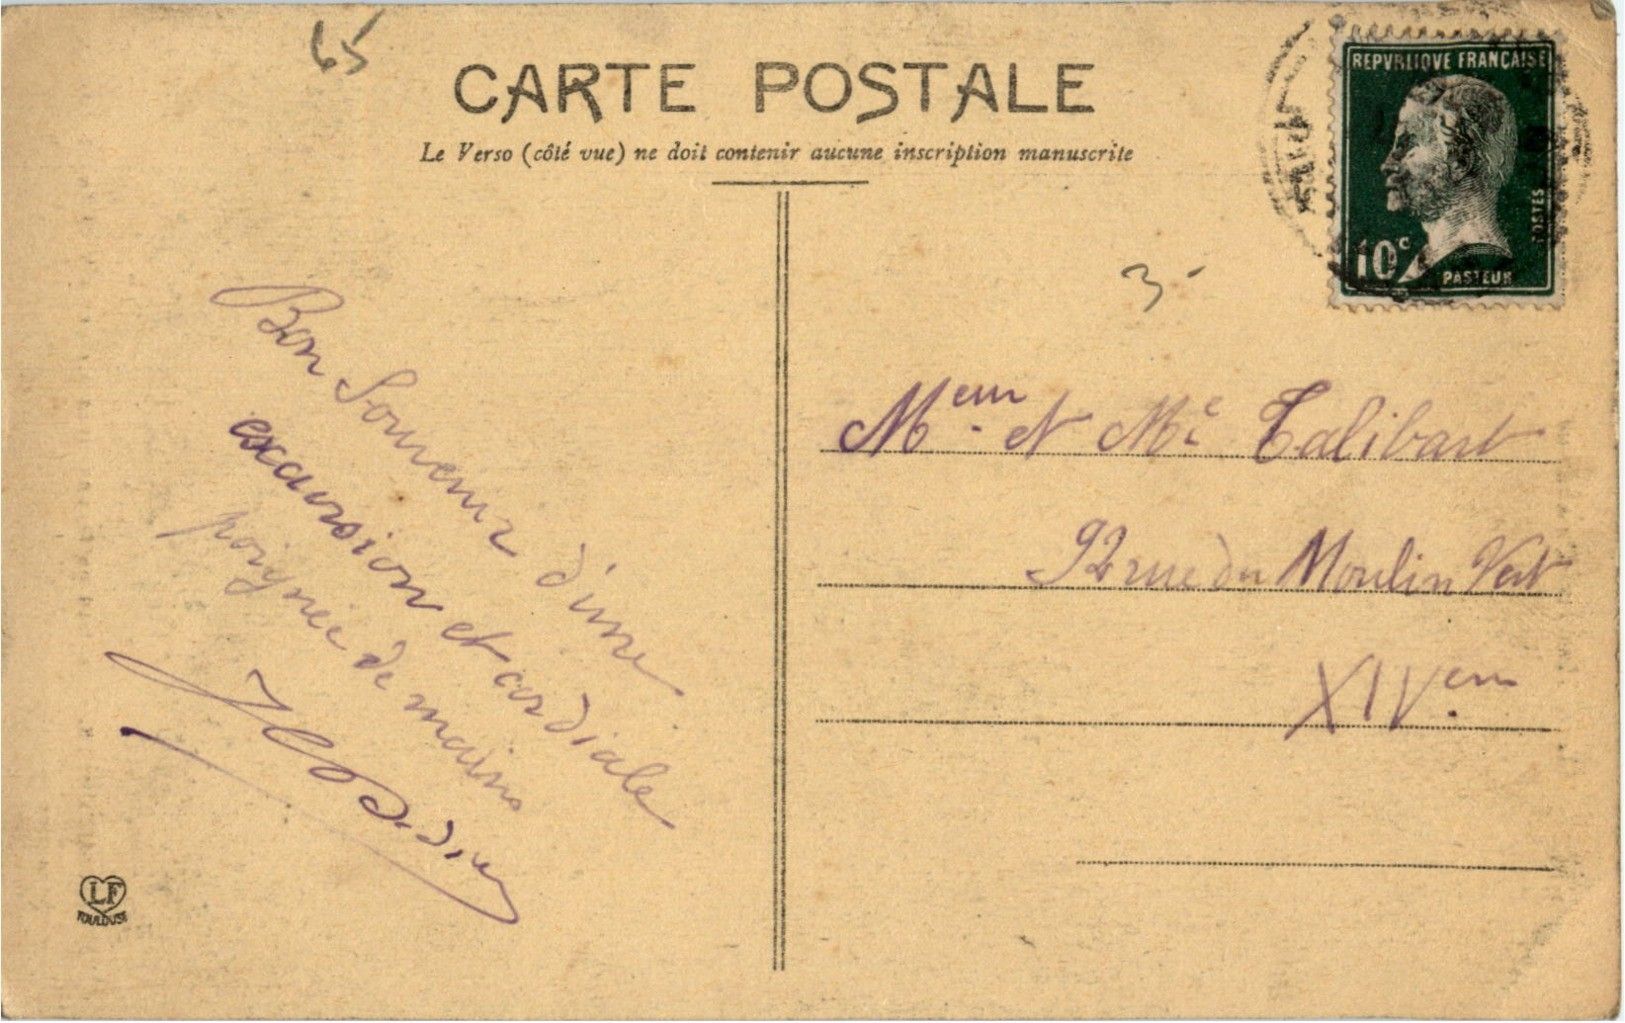 65
CARTE POSTALE
Le Verso (côté vue) ne doit contenir aucune inscription manuscrite
REPVBLIQVE FRANÇAISE
POSTES
10c
PASTEUR
3-
Bon Souvenir d'une
excursion et cordiale
poignée de mains
Mem. et Me Talibart
92 rue du Moulin Vert
XIVem.
LF
TOULOUSE